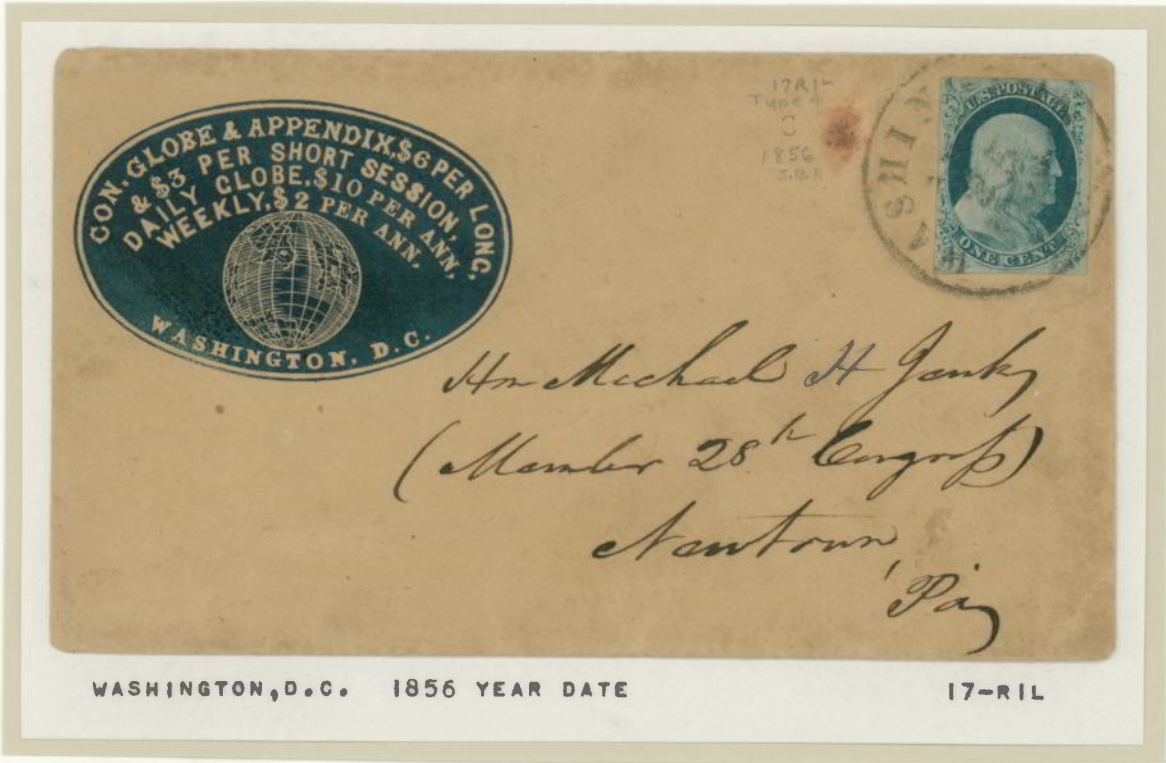 CON. GLOBE & APPENDIX, $6 PER LONG.
& $3 PER SHORT SESSION,
DAILY GLOBE, $10 PER ANN,
WEEKLY, $2 PER ANN.
WASHINGTON. D. C.
17R1L
Type 4
C
1856
WASHIN
U.S. POSTAGE
ONE CENT
Hon Michael H Jenks
(Member 28th Congress)
Newtown,
Pa
WASHINGTON, D.C. 1856 YEAR DATE
17-R1L